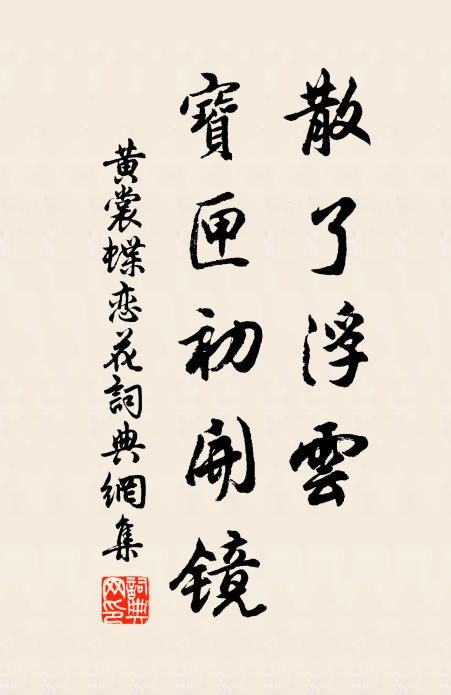 散了浮雲
寶匣初開鏡
黄裳蝶恋花詞典網集
詞典網印